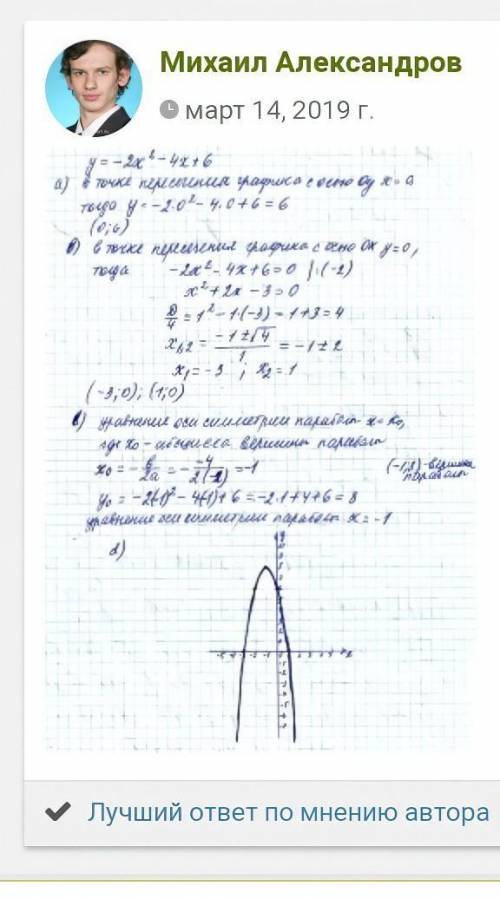 Михаил Александров
март 14, 2019 г.
y = -2x² - 4x + 6
а) в точке пересечения графика с осью Oy x = 0
тогда y = -2·0² - 4·0 + 6 = 6
(0; 6)
в точке пересечения графика с осью Ox y = 0,
тогда -2x² - 4x + 6 = 0 |:(-2)
x² + 2x - 3 = 0
D/4 = 1² - 1·(-3) = 1 + 3 = 4
x1,2 = (-1 ± √4)/1 = -1 ± 2
x₁ = -3 ; x₂ = 1
(-3; 0); (1; 0)
в) уравнение оси симметрии параболы x = x₀,
где x₀ - абсцисса вершины параболы
x₀ = -в/2a = - -4/2(-2) = -1 (-1; 8) - вершина параболы
y₀ = -2(-1)² - 4(-1) + 6 = -2·1 + 4 + 6 = 8
уравнение оси симметрии параболы x = -1
d)
Лучший ответ по мнению автора